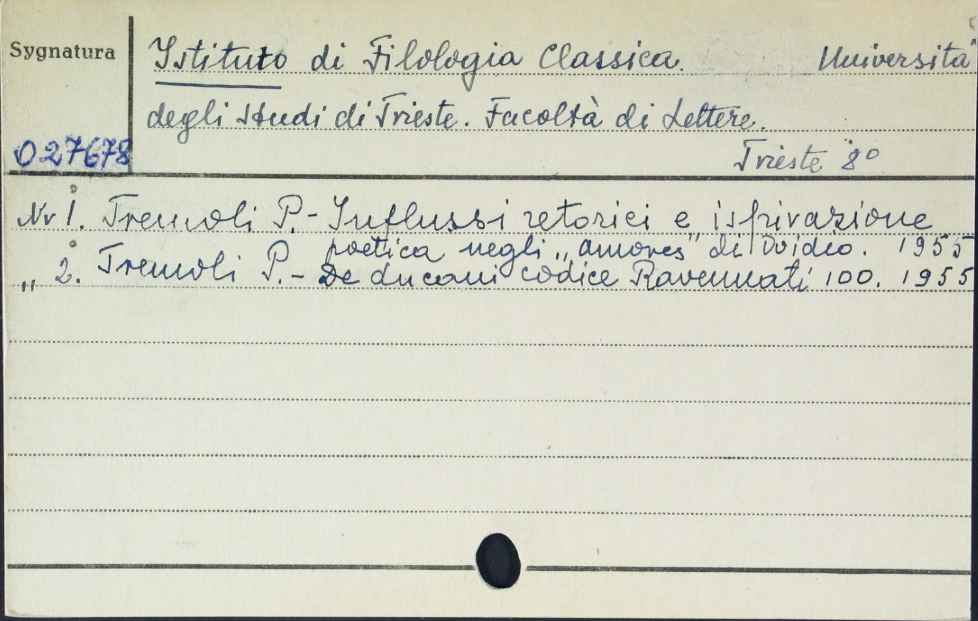 Sygnatura
Istituto di Filologia Classica. Universita
degli Studi di Trieste. Facoltà di Lettere.
027678
Trieste 8°
Nr 1. Tremoli P. - Influssi retorici e ispirazione
poetica negli „amores" di Ovidio. 1955
„ 2. Tremoli P. - De Lucani codice Ravennati 100. 1955